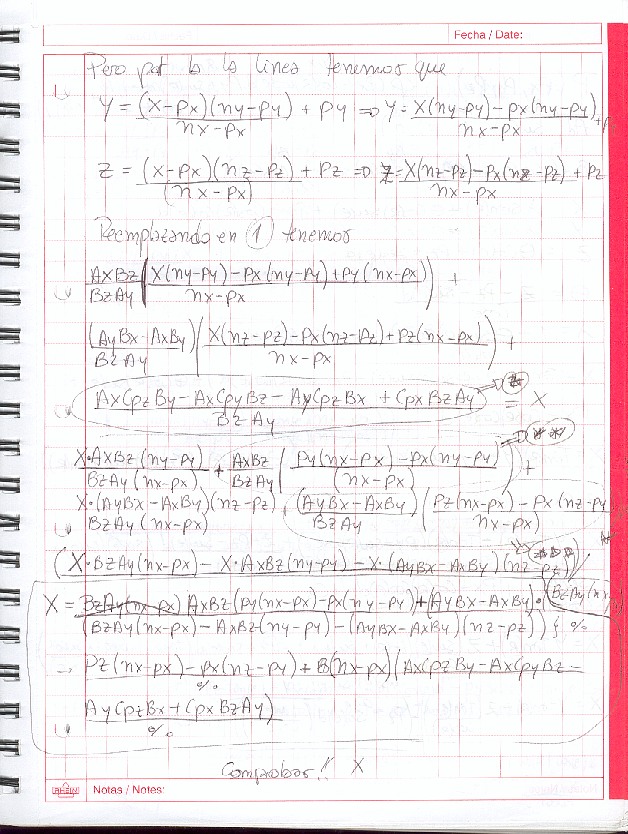 Fecha / Date:
Pero por la linea tenemos que
Y = (X-px)(ny-py) / nx-px + py => Y = X(ny-py) - px(ny-py) / nx-px + p
Z = (x-px)(nz-pz) / (nx-px) + pz => z = X(nz-pz) - px(nz-pz) / nx-px + pz
Reemplazando en (1) tenemos
AxBz / BzAy (X(ny-py) - px(ny-py) + py(nx-px) / nx-px) +
(AyBx - AxBy / BzAy) (X(nz-pz) - px(nz-pz) + pz(nx-px) / nx-px) +
AxCpzBy - AxCpyBz - AyCpzBx + CpxBzAy / BzAy => * = X
X·AxBz(ny-py) / BzAy(nx-px) + AxBz / BzAy (py(nx-px) - px(ny-py) / (nx-px)) + => **
X·(AyBx - AxBy)(nz-pz) / BzAy(nx-px) (AyBx - AxBy) / BzAy (pz(nx-px) - px(nz-py / nx-px)
(X·BzAy(nx-px) - X·AxBz(ny-py) - X·(AyBx - AxBy)(nz-pz)) ***
X = BzAy(nx-px) AxBz(py(nx-px) - px(ny-py) + (AyBx - AxBy)· / (BzAy(nx-px) - AxBz(ny-py) - (AyBx - AxBy)(nz-pz)) } %
→ pz(nx-px) - px(nz-py) + (nx-px)(AxCpzBy - AxCpyBz - / %
AyCpzBx + CpxBzAy) / %
Comprobar!! X
RHEIN
Notas / Notes: